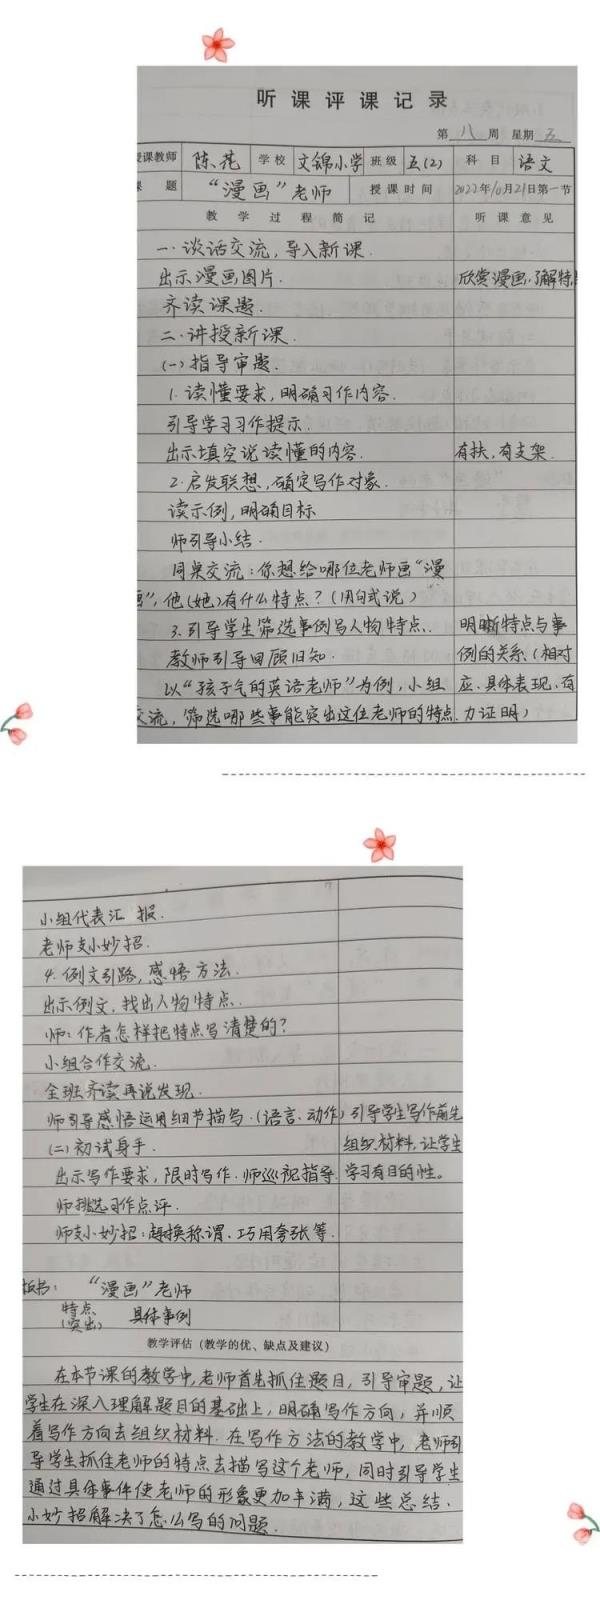 听课评课记录
第 八 周 星期 五
授课教师 陈花 学校 文锦小学 班级 五(2) 科目 语文
课题 “漫画”老师 授课时间 2022年10月21日第一节
教学过程简记 听课意见
一.谈话交流,导入新课.
出示漫画图片. 欣赏漫画,了解特点
齐读课题.
二.讲授新课.
(一)指导审题.
1.读懂要求,明确习作内容.
引导学习习作提示.
出示填空说读懂的内容. 有扶,有支架.
2.启发联想,确定写作对象.
读示例,明确目标
师引导小结.
同桌交流:你想给哪位老师画“漫
画”,他(她)有什么特点?(用句式说)
3.引导学生筛选事例写人物特点. 明晰特点与事
教师引导回顾旧知. 例的关系(相对
以“孩子气的英语老师”为例,小组 应、具体表现、有
交流,筛选哪些事能突出这位老师的特点. 力证明)
小组代表汇报.
老师支小妙招.
4.例文引路,感悟方法.
出示例文,找出人物特点.
师:作者怎样把特点写清楚的?
小组合作交流.
全班齐读再说发现.
师引导感悟运用细节描写.(语言、动作) 引导学生写作前先
(二)初试身手. 组织材料,让学生
出示写作要求,限时写作.师巡视指导. 学习有目的性。
师挑选习作点评.
师支小妙招:替换称谓、巧用夸张等.
板书: “漫画”老师
特点 具体事例
(突出)
教学评估(教学的优、缺点及建议)
在本节课的教学中,老师首先抓住题目,引导审题,让
学生在深入理解题目的基础上,明确写作方向,并顺
着写作方向去组织材料.在写作方法的教学中,老师引
导学生抓住老师的特点去描写这个老师,同时引导学生
通过具体事件使老师的形象更加丰满,这些总结、
小妙招解决了怎么写的问题.